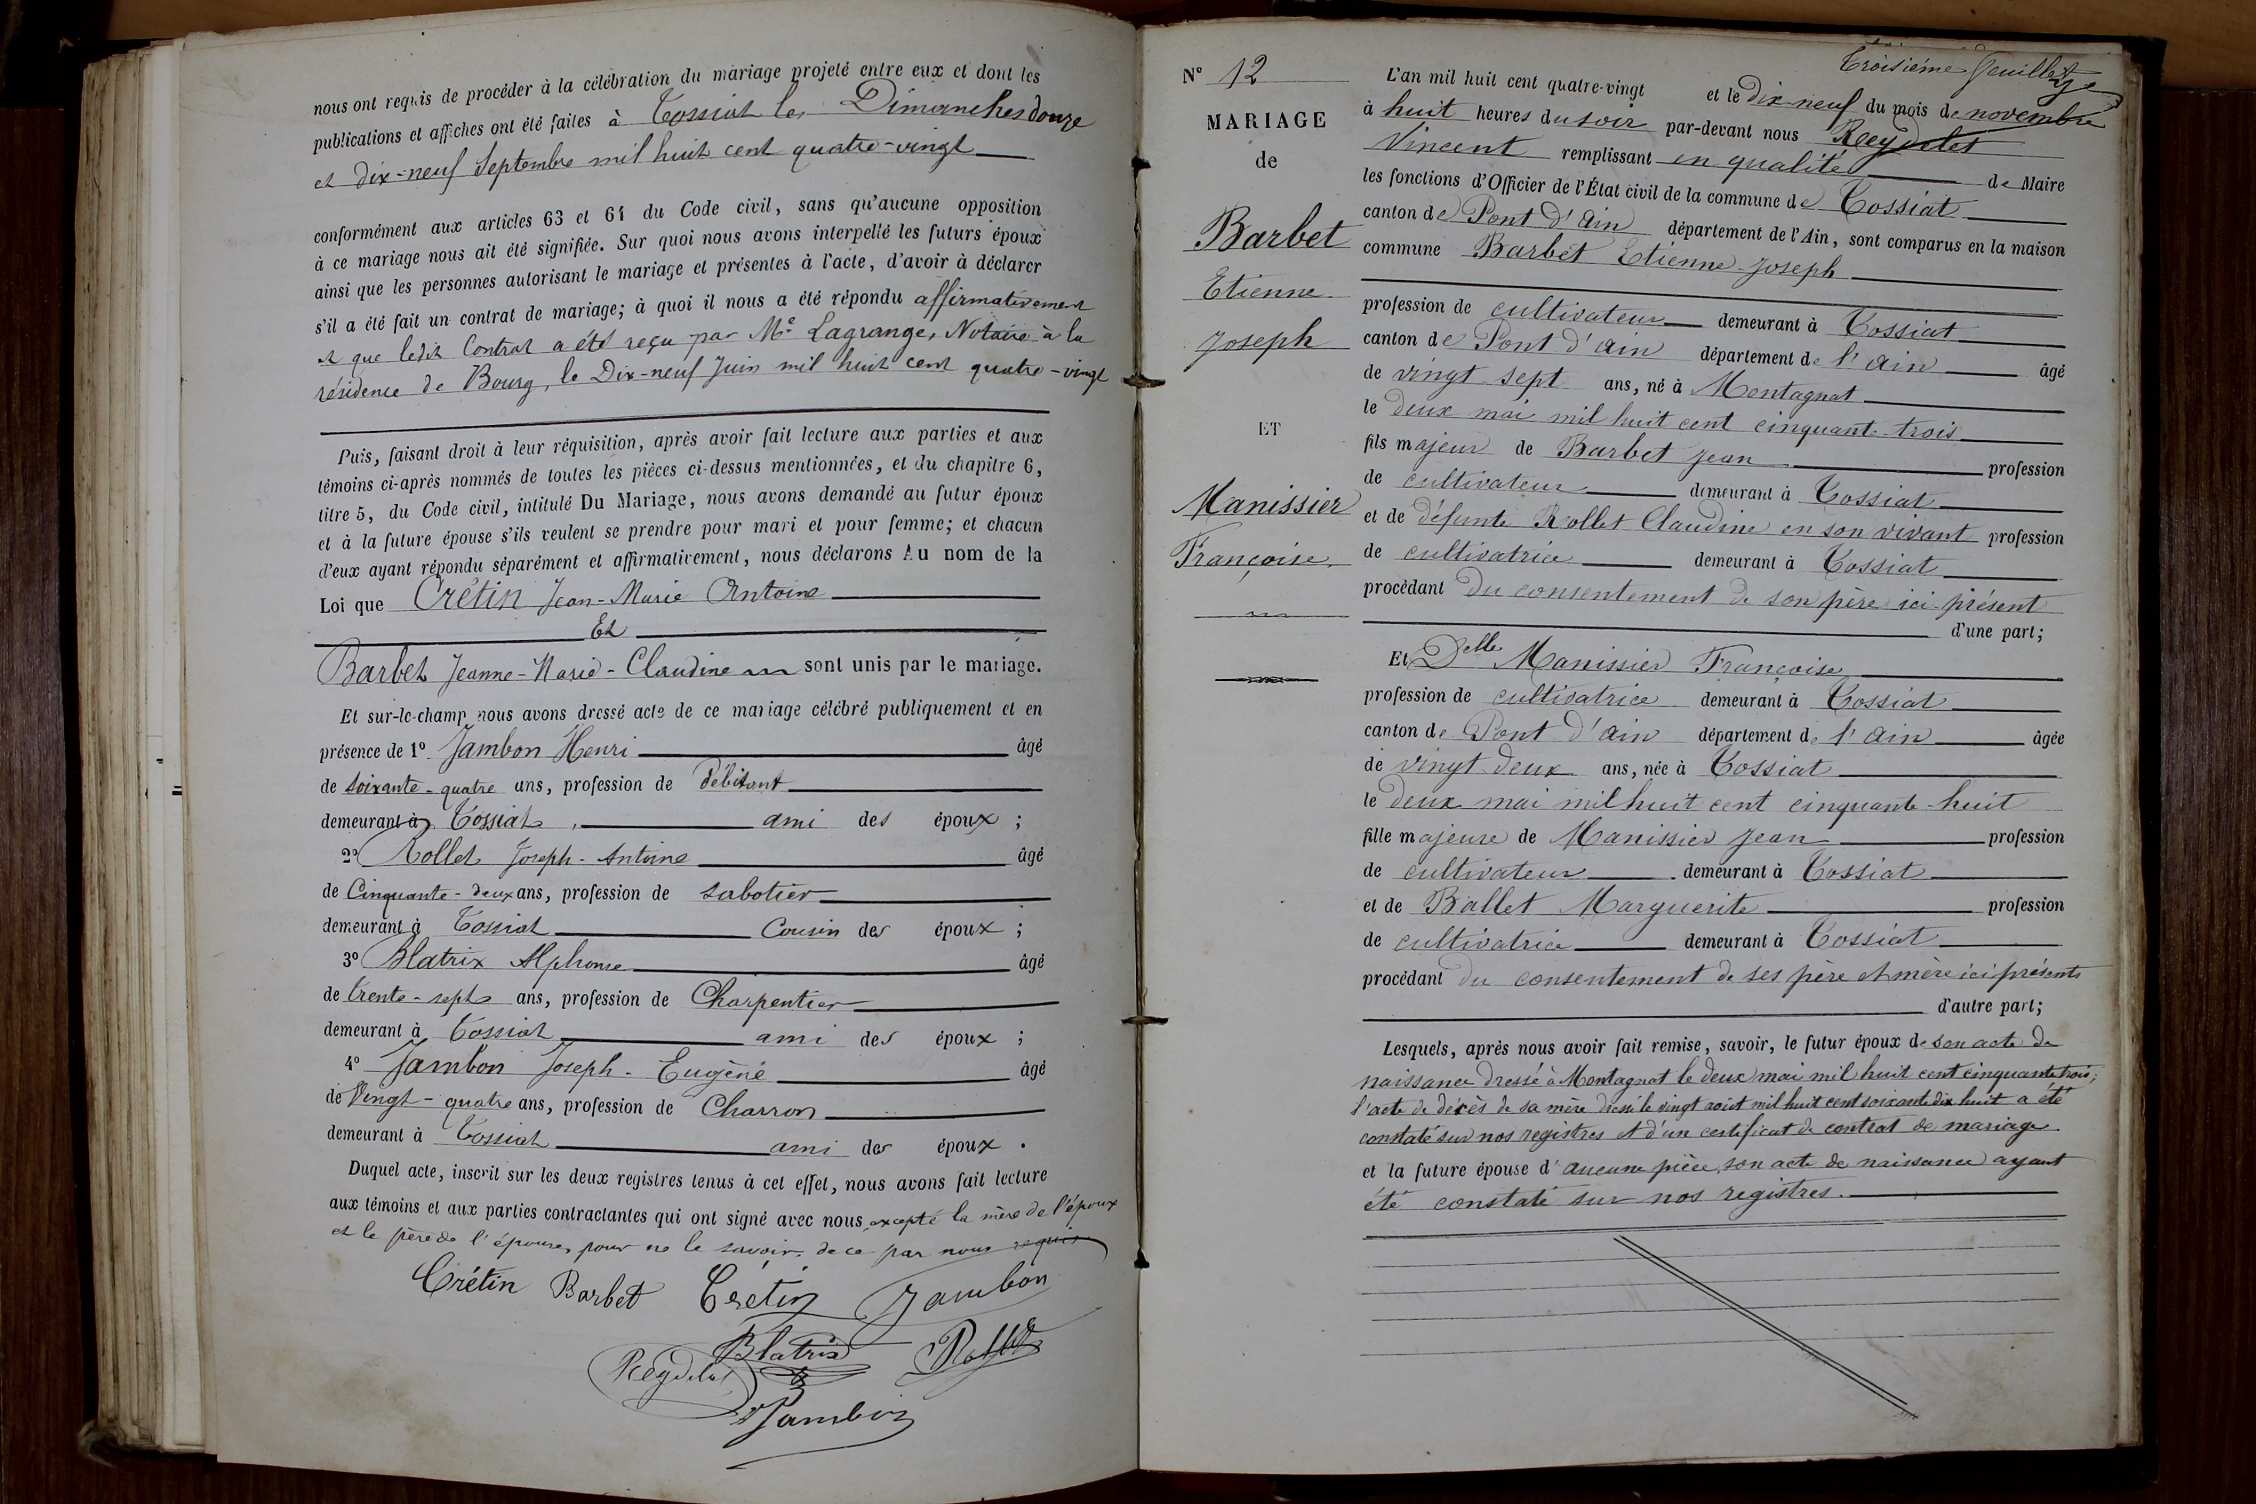 nous ont requis de procéder à la célébration du mariage projeté entre eux et dont les
publications et affiches ont été faites à Tossiat les Dimanches douze
et dix-neuf Septembre mil huit cent quatre-vingt
conformément aux articles 63 et 64 du Code civil, sans qu'aucune opposition
à ce mariage nous ait été signifiée. Sur quoi nous avons interpellé les futurs époux
ainsi que les personnes autorisant le mariage et présentes à l'acte, d'avoir à déclarer
s'il a été fait un contrat de mariage; à quoi il nous a été répondu affirmativement
et que ledit Contrat a été reçu par Me Lagrange, Notaire à la
résidence de Bourg, le Dix-neuf Juin mil huit cent quatre-vingt
Puis, faisant droit à leur réquisition, après avoir fait lecture aux parties et aux
témoins ci-après nommés de toutes les pièces ci-dessus mentionnées, et du chapitre 6,
titre 5, du Code civil, intitulé Du Mariage, nous avons demandé au futur époux
et à la future épouse s'ils veulent se prendre pour mari et pour femme; et chacun
d'eux ayant répondu séparément et affirmativement, nous déclarons Au nom de la
Loi que Crétin Jean-Marie Antoine
Et
Barbet Jeanne-Marie-Claudine sont unis par le mariage.
Et sur-le-champ nous avons dressé acte de ce mariage célébré publiquement et en
présence de 1° Jambon Henri âgé
de soixante-quatre ans, profession de Débitant
demeurant à Tossiat, ami des époux ;
2° Rollet Joseph-Antoine âgé
de Cinquante-deux ans, profession de sabotier
demeurant à Tossiat Cousin des époux ;
3° Blatrix Alphonse âgé
de trente-sept ans, profession de Charpentier
demeurant à Tossiat ami des époux ;
4° Jambon Joseph-Eugène âgé
de Vingt-quatre ans, profession de Charron
demeurant à Tossiat ami des époux .
Duquel acte, inscrit sur les deux registres tenus à cet effet, nous avons fait lecture
aux témoins et aux parties contractantes qui ont signé avec nous, excepté la mère de l'époux
et le père de l'épouse, pour ne le savoir, de ce par nous requis
Crétin Barbet Crétin Jambon
Blatrix Rollet
Reydelet
Jambon
Troisième feuillet
N° 12
MARIAGE
de
Barbet
Etienne
Joseph
ET
Manissier
Françoise
L'an mil huit cent quatre-vingt et le dix-neuf du mois de novembre
à huit heures du soir par-devant nous Reydelet
Vincent remplissant en qualité de Maire
les fonctions d'Officier de l'État civil de la commune de Tossiat
canton de Pont d'Ain département de l'Ain, sont comparus en la maison
commune Barbet Etienne-Joseph
profession de cultivateur demeurant à Tossiat
canton de Pont d'ain département de l'ain âgé
de vingt sept ans, né à Montagnat
le deux mai mil huit cent cinquante-trois
fils majeur de Barbet Jean profession
de cultivateur demeurant à Tossiat
et de défunte Rollet Claudine en son vivant profession
de cultivatrice demeurant à Tossiat
procédant du consentement de son père ici présent
d'une part;
Et Delle Manissier Françoise
profession de cultivatrice demeurant à Tossiat
canton de Pont d'ain département de l'ain âgée
de vingt-deux ans, née à Tossiat
le deux mai mil huit cent cinquante-huit
fille majeure de Manissier Jean profession
de cultivateur demeurant à Tossiat
et de Ballet Marguerite profession
de cultivatrice demeurant à Tossiat
procédant du consentement de ses père et mère ici présents
d'autre part;
Lesquels, après nous avoir fait remise, savoir, le futur époux de son acte de
naissance dressé à Montagnat le deux mai mil huit cent cinquante trois;
l'acte de décès de sa mère dressé le vingt août mil huit cent soixante dix huit a été
constaté sur nos registres et d'un certificat de contrat de mariage
et la future épouse d'aucune pièce, son acte de naissance ayant
été constaté sur nos registres.